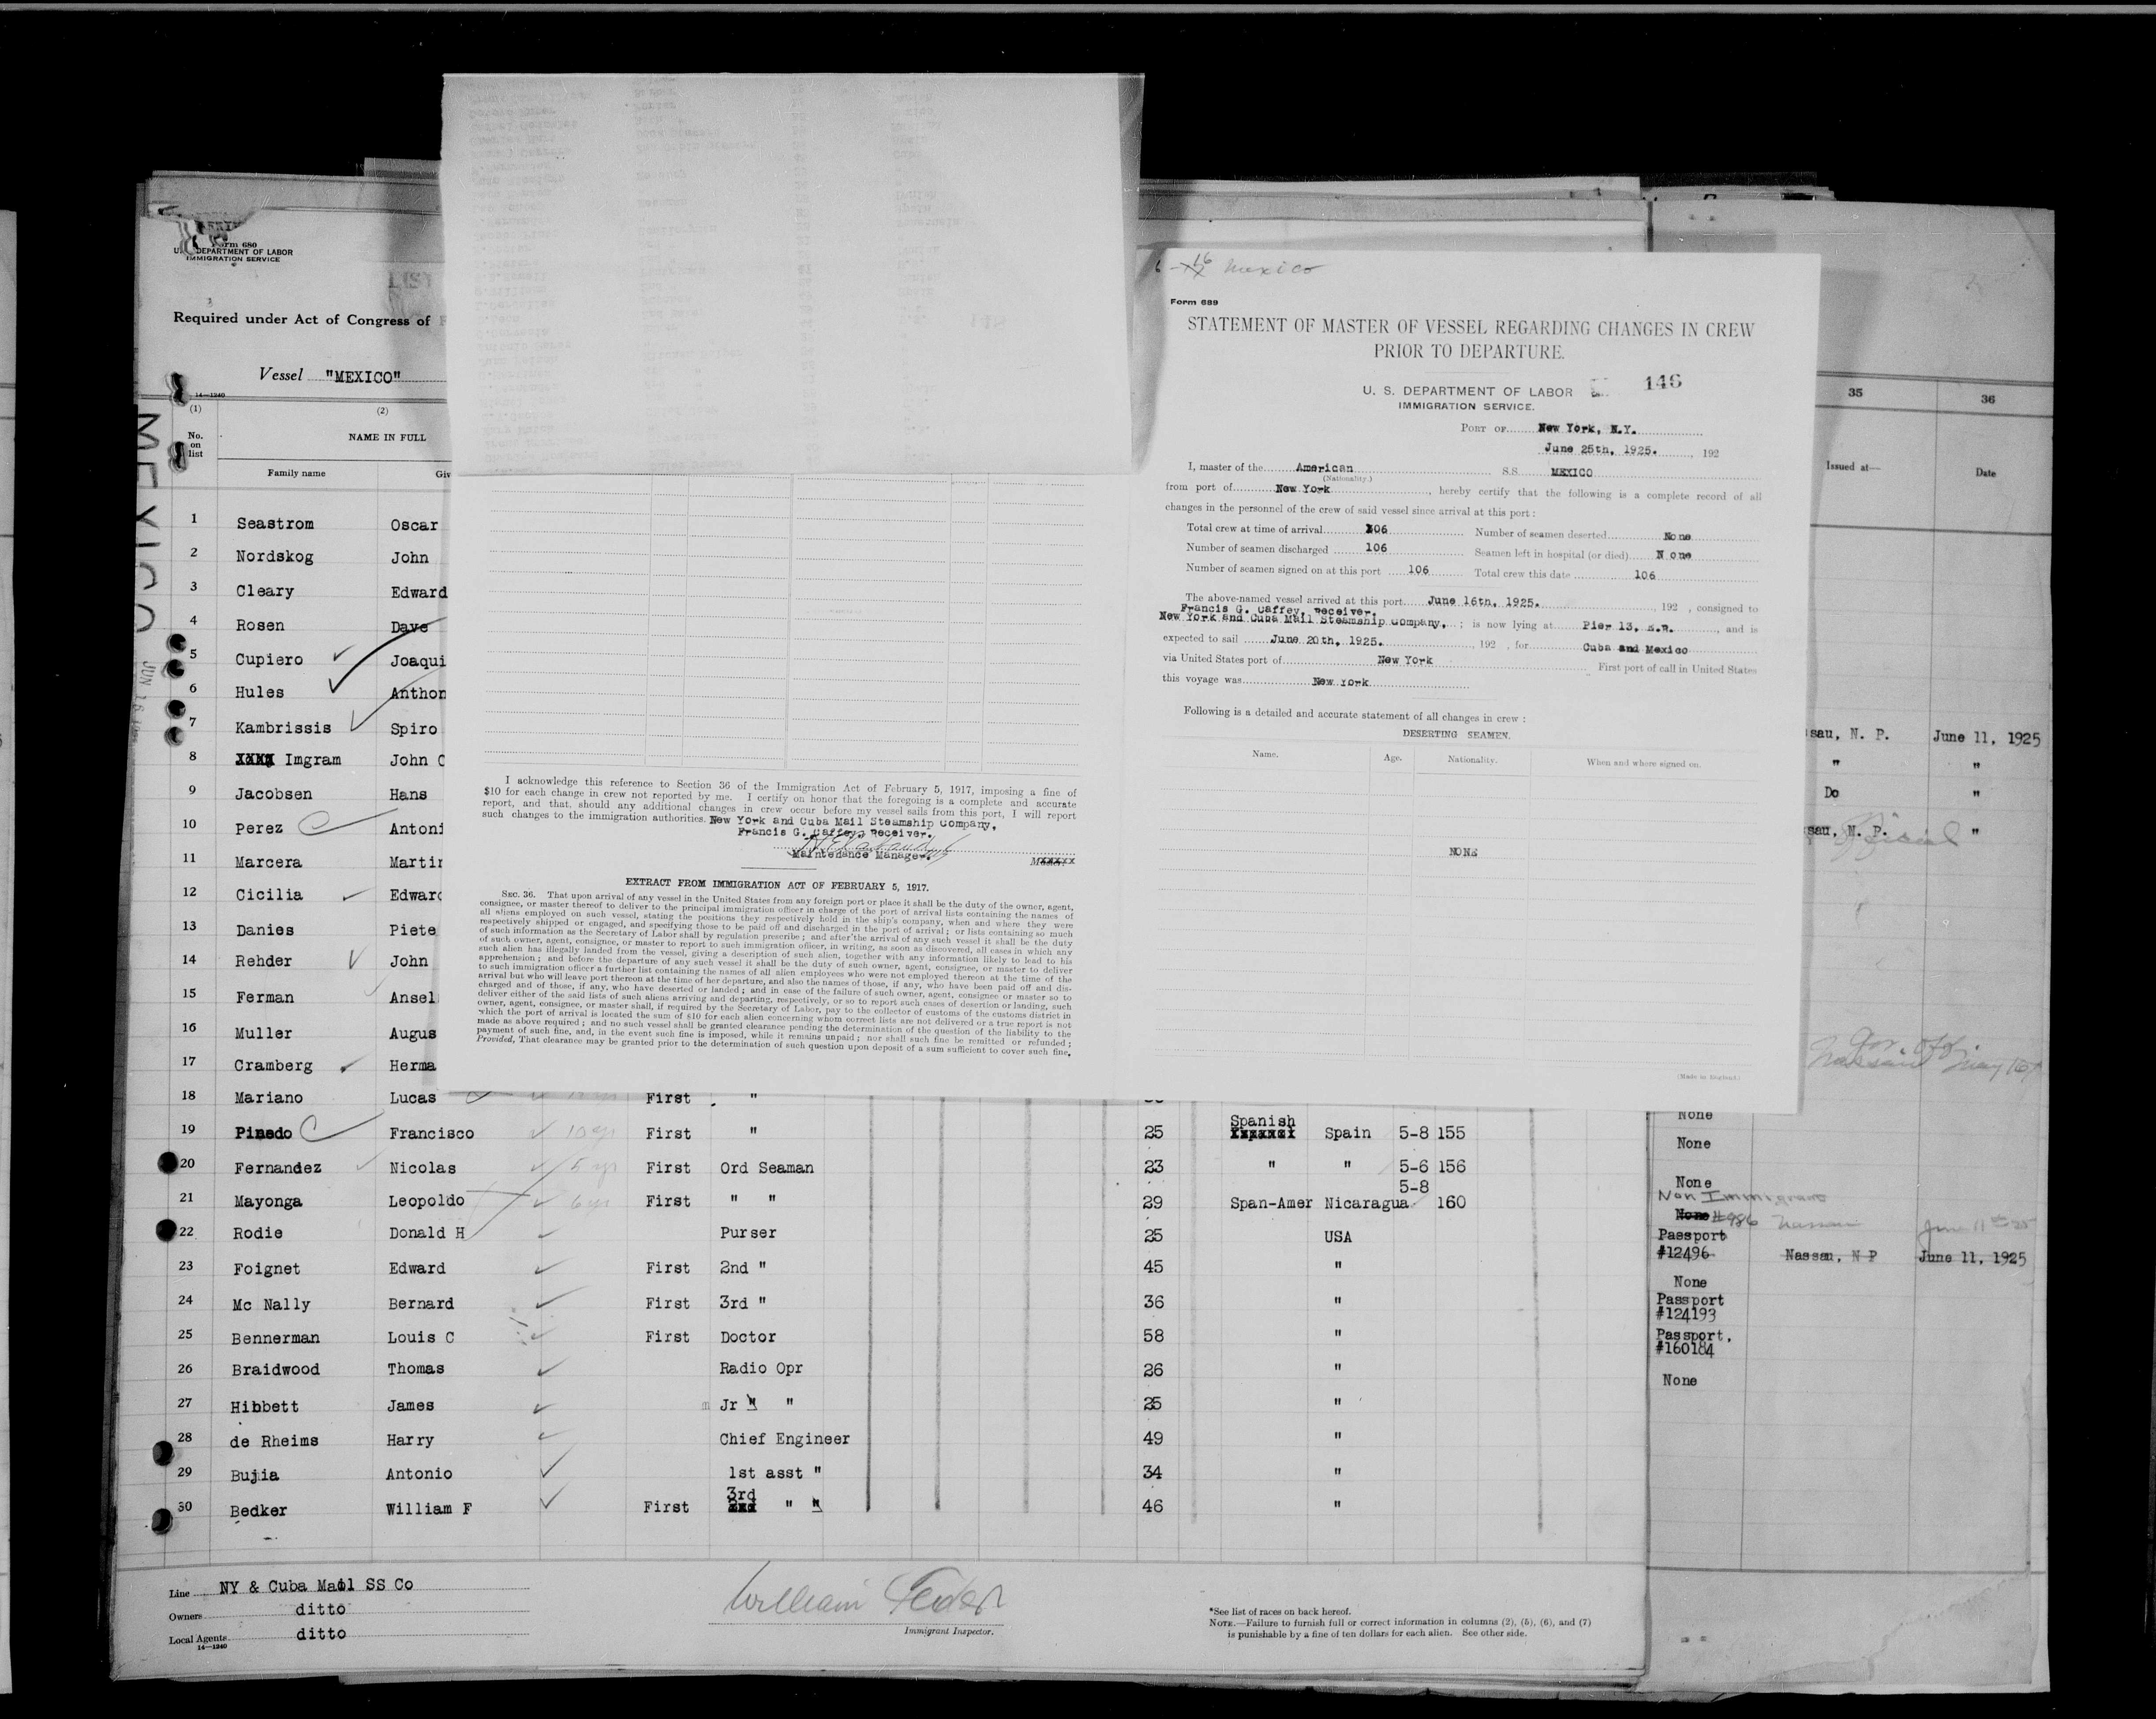 Form 680
U. S. DEPARTMENT OF LABOR
IMMIGRATION SERVICE
LIST
Required under Act of Congress of
Vessel "MEXICO"
14—1240
(1) (2)
No. on list
NAME IN FULL
Family name
MEXICO
1 Seastrom Oscar
2 Nordskog John
3 Cleary Edward
4 Rosen Dave
5 Cupiero Joaqui
6 Hules Anthon
7 Kambrissis Spiro
8 XXXX Imgram John C
9 Jacobsen Hans
10 Perez Antoni
11 Marcera Martin
12 Cicilia Edward
13 Danies Piete
14 Rehder John
15 Ferman Ansel
16 Muller Augus
17 Cramberg Herma
18 Mariano Lucas First "
19 Pinedo Francisco 10 yr First " 25 Spanish Spain 5-8 155
20 Fernandez Nicolas 5 yr First Ord Seaman 23 " " 5-6 156
5-8
21 Mayonga Leopoldo 6 yr First " " 29 Span-Amer Nicaragua 160
22 Rodie Donald H Purser 25 USA
23 Foignet Edward First 2nd " 45 "
24 Mc Nally Bernard First 3rd " 36 "
25 Bennerman Louis C First Doctor 58 "
26 Braidwood Thomas Radio Opr 26 "
27 Hibbett James Jr " " 25 "
28 de Rheims Harry Chief Engineer 49 "
29 Bujia Antonio 1st asst " 34 "
30 Bedker William F First 3rd " " 46 "
Line NY & Cuba Mail SS Co
Owners ditto
Local Agents ditto
14—1240
William Feder
Immigrant Inspector.
*See list of races on back hereof.
NOTE.—Failure to furnish full or correct information in columns (2), (5), (6), and (7)
is punishable by a fine of ten dollars for each alien. See other side.
I acknowledge this reference to Section 36 of the Immigration Act of February 5, 1917, imposing a fine of
$10 for each change in crew not reported by me. I certify on honor that the foregoing is a complete and accurate
report, and that, should any additional changes in crew occur before my vessel sails from this port, I will report
such changes to the immigration authorities. New York and Cuba Mail Steamship Company,
Francis G. Caffey, Receiver.
Maintenance Manager.
EXTRACT FROM IMMIGRATION ACT OF FEBRUARY 5, 1917.
SEC. 36. That upon arrival of any vessel in the United States from any foreign port or place it shall be the duty of the owner, agent,
consignee, or master thereof to deliver to the principal immigration officer in charge of the port of arrival lists containing the names of
all aliens employed on such vessel, stating the positions they respectively hold in the ship's company, when and where they were
respectively shipped or engaged, and specifying those to be paid off and discharged in the port of arrival; or lists containing so much
of such information as the Secretary of Labor shall by regulation prescribe; and after the arrival of any such vessel it shall be the duty
of such owner, agent, consignee, or master to report to such immigration officer, in writing, as soon as discovered, all cases in which any
such alien has illegally landed from the vessel, giving a description of such alien, together with any information likely to lead to his
apprehension; and before the departure of any such vessel it shall be the duty of such owner, agent, consignee, or master to deliver
to such immigration officer a further list containing the names of all alien employees who were not employed thereon at the time of the
arrival but who will leave port thereon at the time of her departure, and also the names of those, if any, who have been paid off and dis-
charged and of those, if any, who have deserted or landed; and in case of the failure of such owner, agent, consignee or master so to
deliver either of the said lists of such aliens arriving and departing, respectively, or so to report such cases of desertion or landing, such
owner, agent, consignee, or master shall, if required by the Secretary of Labor, pay to the collector of customs of the customs district in
which the port of arrival is located the sum of $10 for each alien concerning whom correct lists are not delivered or a true report is not
made as above required; and no such vessel shall be granted clearance pending the determination of the question of the liability to the
payment of such fine, and, in the event such fine is imposed, while it remains unpaid; nor shall such fine be remitted or refunded;
Provided, That clearance may be granted prior to the determination of such question upon deposit of a sum sufficient to cover such fine.
16 Mexico
Form 689
STATEMENT OF MASTER OF VESSEL REGARDING CHANGES IN CREW
PRIOR TO DEPARTURE.
U. S. DEPARTMENT OF LABOR 146
IMMIGRATION SERVICE.
PORT OF New York, N.Y.
June 25th, 1925. , 192
I, master of the American S.S. MEXICO
(Nationality.)
from port of New York , hereby certify that the following is a complete record of all
changes in the personnel of the crew of said vessel since arrival at this port:
Total crew at time of arrival 106 Number of seamen deserted None
Number of seamen discharged 106 Seamen left in hospital (or died) None
Number of seamen signed on at this port 106 Total crew this date 106
The above-named vessel arrived at this port June 16th, 1925. , 192 , consigned to
Francis G. Caffey, Receiver.
New York and Cuba Mail Steamship Company, ; is now lying at Pier 13, E.R. , and is
expected to sail June 20th, 1925. , 192 , for Cuba and Mexico
via United States port of New York First port of call in United States
this voyage was New York
Following is a detailed and accurate statement of all changes in crew:
DESERTING SEAMEN.
Name. Age. Nationality. When and where signed on.
NONE
(Made in England.)
35 36
Issued at— Date
sau, N. P. June 11, 1925
" "
Do "
sau, N. P. "
None
None
None
Non Immigrant
None #986 Nassau June 11
Passport
#12496 Nassau, N P June 11, 1925
None
Passport
#124193
Passport,
#160184
None